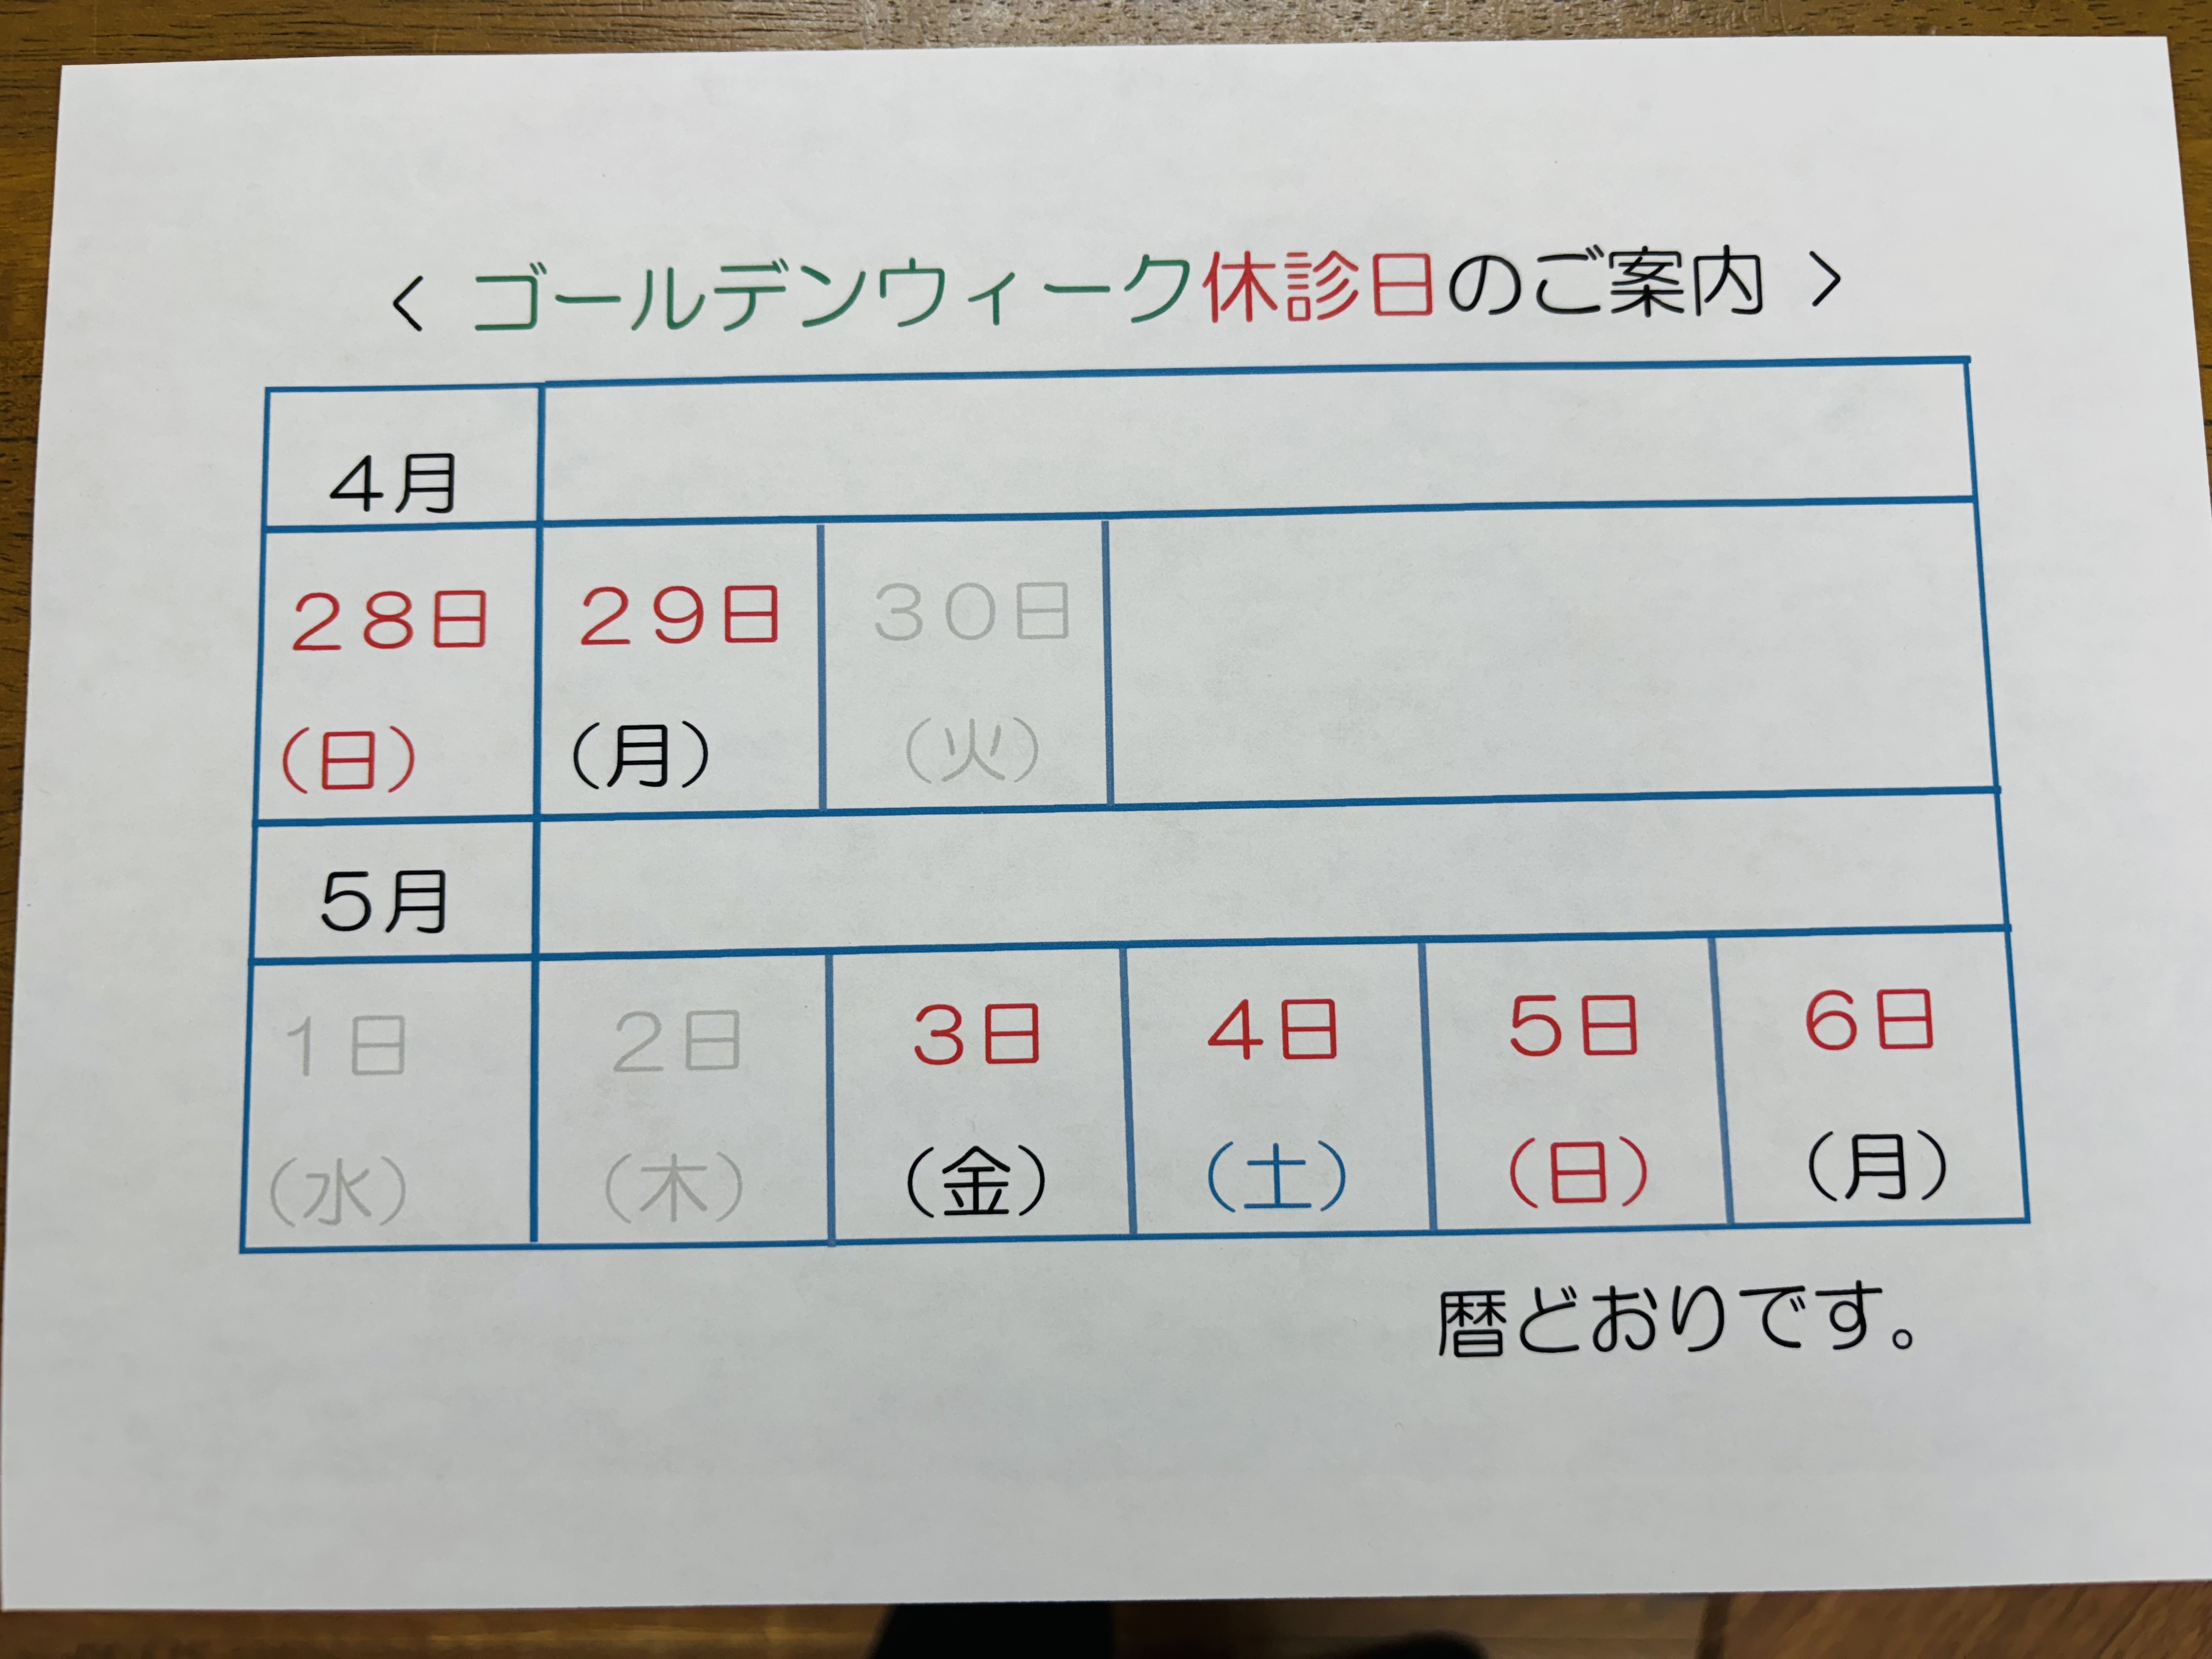 < ゴールデンウィーク休診日のご案内 >
4月
28日 29日 30日
(日) (月) (火)
5月
1日 2日 3日 4日 5日 6日
(水) (木) (金) (土) (日) (月)
暦どおりです。